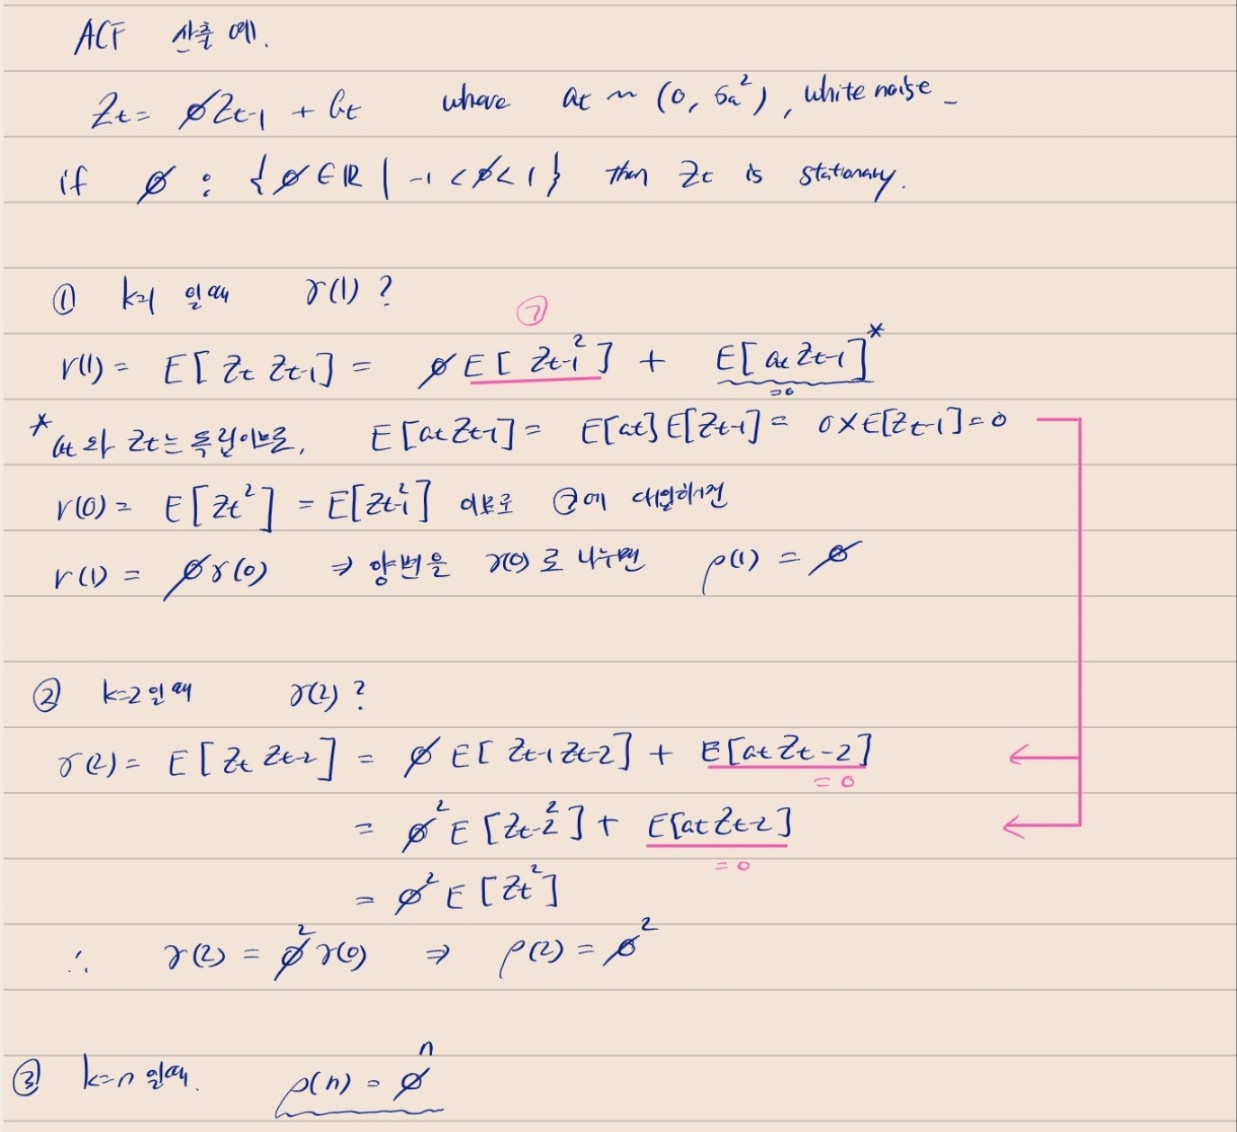 ACF 산출 예.
Zt = ϕZt-1 + at where at ~ (0, σa²), white noise
if ϕ : {ϕ∈ℝ | -1 < ϕ < 1} then Zt is stationary.
① k=1 일때 γ(1) ?
㉠
γ(1) = E[Zt Zt-1] = ϕE[Zt-1²] + E[at Zt-1]*
=0
* at와 Zt는 독립이므로, E[at Zt-1] = E[at]E[Zt-1] = 0×E[Zt-1] = 0
γ(0) = E[Zt²] = E[Zt-1²] 이므로 ㉠에 대입하면
γ(1) = ϕγ(0) ⇒ 양변을 γ(0)로 나누면 ρ(1) = ϕ
② k=2일때 γ(2) ?
γ(2) = E[Zt Zt-2] = ϕE[Zt-1 Zt-2] + E[at Zt-2]
=0
= ϕ²E[Zt-2²] + E[at Zt-2]
=0
= ϕ²E[Zt²]
∴ γ(2) = ϕ²γ(0) ⇒ ρ(2) = ϕ²
③ k=n일때. ρ(n) = ϕⁿ